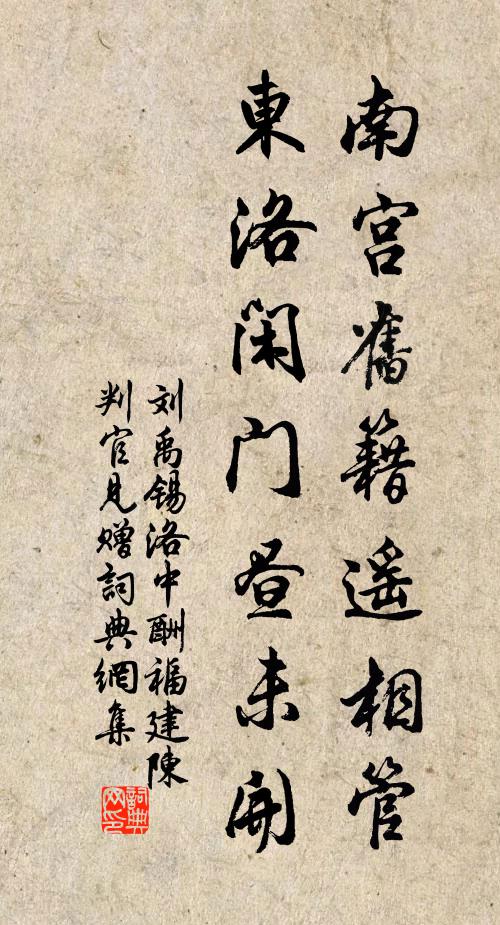 南宫舊籍遥相管
東洛闲门昼未開
刘禹锡洛中酬福建陳
判官見赠詞典網集
詞典
网印